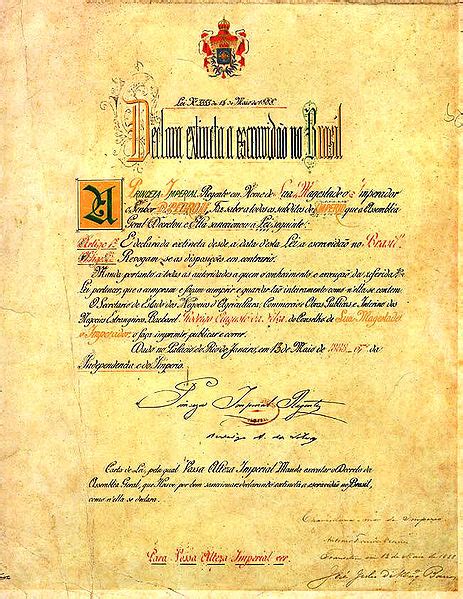 Lei N. 3353 de 13 de Maio de 1888.
Declara extincta a escravidão no Brasil
A PRINCEZA IMPERIAL Regente em Nome de Sua Magestade o Imperador
o Senhor D. PEDRO II, Faz saber a todos os subditos do IMPERIO que a Assembléa
Geral Decretou e Ella sanccionou a Lei seguinte:
Artigo 1º É declarada extincta desde a data desta Lei a escravidão no Brasil.
Artigo 2º Revogam-se as disposições em contrario.
Manda portanto a todas as autoridades a quem o conhecimento e execução da referida Lei
pertencer, que a cumpram e façam cumprir e guardar tão inteiramente como n'ella se contem.
O Secretario de Estado dos Negocios d'Agricultura, Commercio e Obras Publicas e Interino dos
Negocios Estrangeiros, Bacharel Rodrigo Augusto da Silva do Conselho de Sua Magestade
o Imperador, o faça imprimir, publicar e correr.
Dado no Palacio do Rio de Janeiro, em 13 de Maio de 1888, 67º da
Independencia e do Imperio.
Princeza Imperial Regente
Rodrigo A. da Silva
Carta de Lei, pela qual Vossa Alteza Imperial Manda executar o Decreto da
Assembléa Geral, que Houve por bem sanccionar declarando extincta a escravidão no Brasil,
como n'ella se declara.
Chancellaria-mor do Imperio
Antonio Ferreira Vianna
Transitou em 13 de Maio de 1888
José Julio de Albuq. Barros
Para Vossa Alteza Imperial ver.